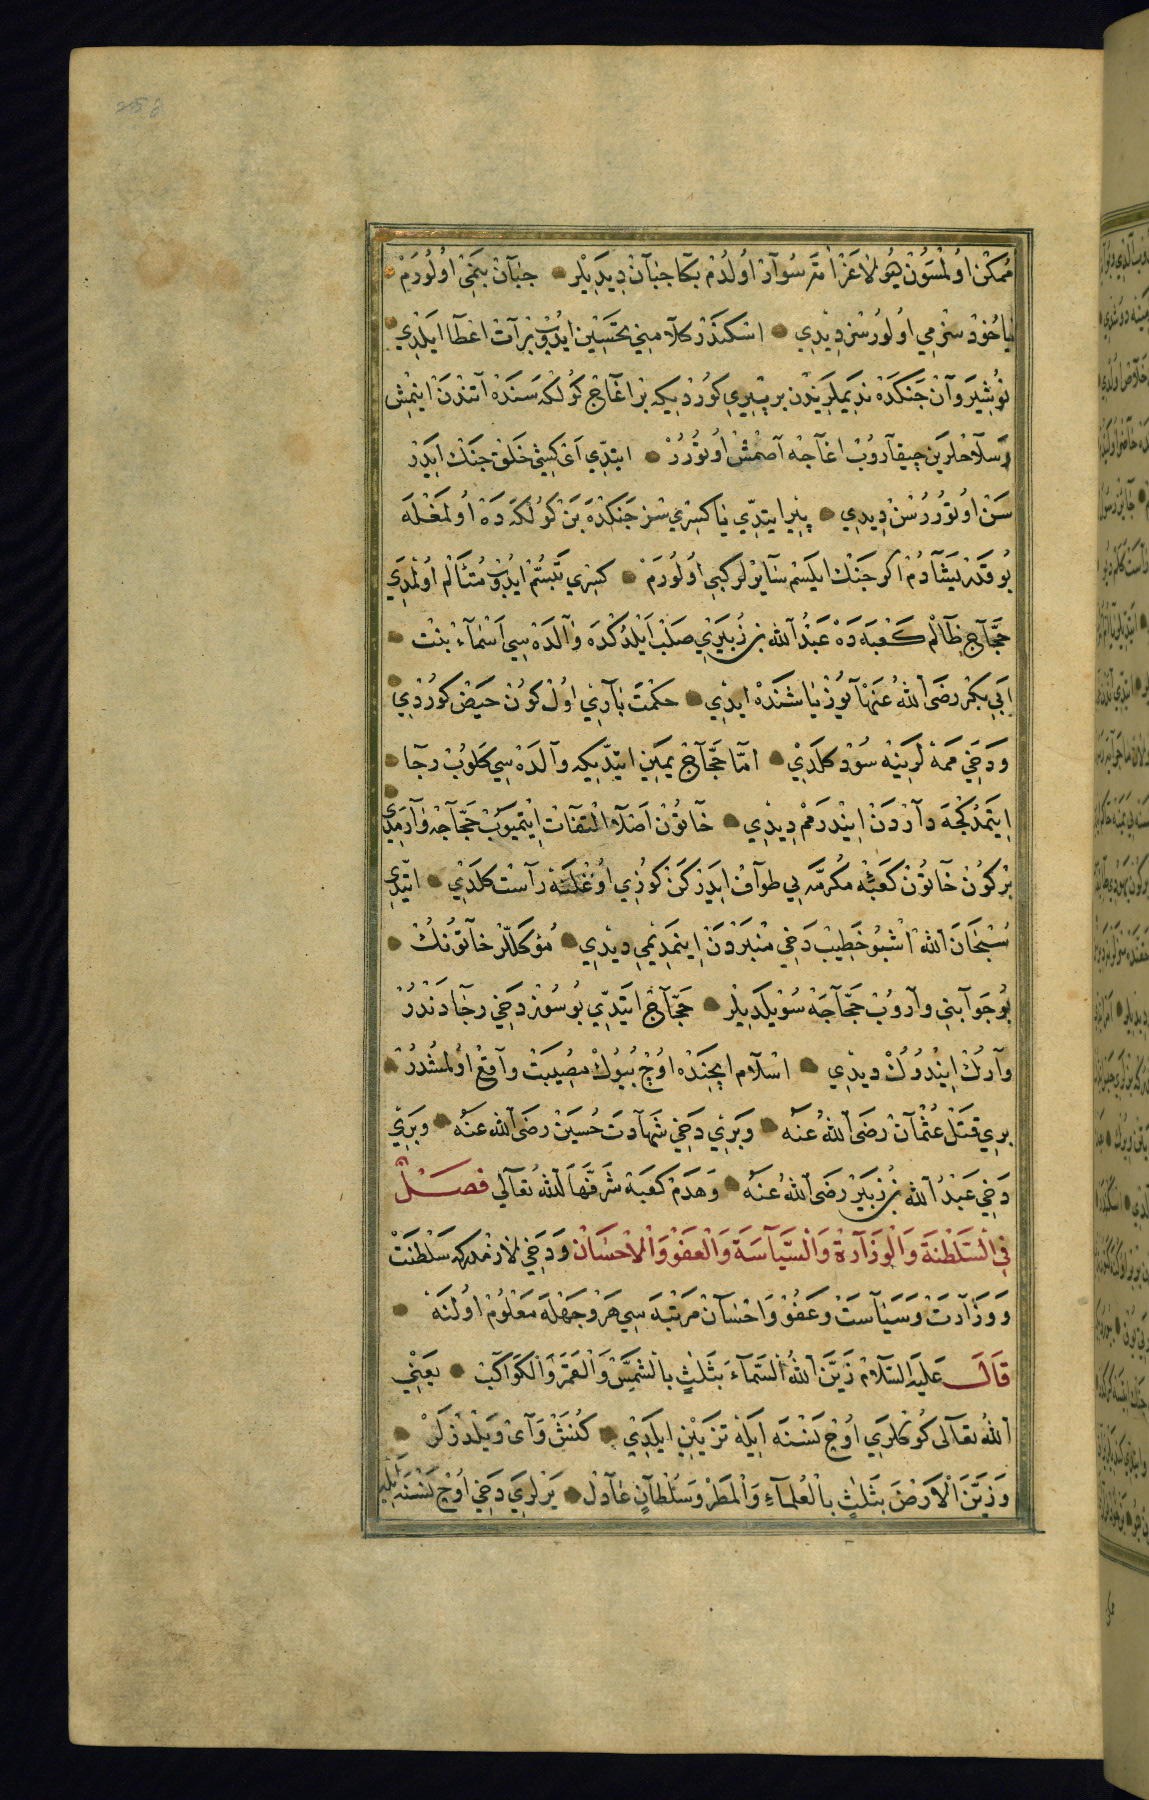 ممكن اولمسون هولاعز امر سوار اولدم بكا جبان ديديلر جبان بخي اولورم
ياخود سنرمي اولورسز ديدي اسكندر كلامني تحسين ايدوب برات اعطا ايلدي
نوشيروان جنكده نديملريندن بر پيري كوردیكه بر اغاج كولكه سنده آتندن اينمش
وسلاحلرين چيقاروب اغاجه آصمش اوتورر ايتدي اي كشي خلق جنك ايدر
سن اوتوررسن ديدي پير ايتدي يا كسري سز جنكده بن كولكه ده اولمغله
بو قدر يشادم اكر جنك ايلسم سايرلر كبي اولورم كسري تبسم ايدوب متألم اولمدي
حجاج ظالم كعبه ده عبد الله بن زبيري صلب ايلدكده والده سي اسماء بنت
ابي بكر رضي الله عنها يوز ياشنده ايدي حكمت باري اول كون حيض كوردي
ودخي ممه لرينه سود كلدي اما حجاج يمين ايتديكه والده سي كلوب رجا
ايتمدكجه داردن ايندرمم ديدي خاتون اصلا التفات ايتميوب حجاجه وارمدي
بر كون خاتون كعبه مكرمه يي طواف ايدركن كوزي اوغلنه راست كلدي ايتدي
سبحان الله اشبو خطيب دخي منبردن اينمديمي ديدي موكللر خاتونك
بو جوابني واروب حجاجه سويلديلر حجاج ايتدي بو سوز دخي رجادندر
وارك ايندروك ديدي اسلام ايچنده اوچ بيوك مصيبت واقع اولمشدر
بري قتل عثمان رضي الله عنه وبري دخي شهادت حسين رضي الله عنه وبري
دخي عبد الله بن زبير رضي الله عنه وهدم كعبة شرفها الله تعالي فصل
في السلطنة والوزارة والسياسة والعفو والاحسان ودخي لازمدركه سلطنت
ووزارت وسياست وعفو واحسان مرتبه سي هر وجهله معلوم اولنه
قال عليه السلام زين الله السماء بثلث بالشمس والقمر والكواكب يعني
الله تعالى كوكلري اوچ نسنه ايله تزيين ايلدي كنش واي ويلدزلر
وزين الارض بثلث بالعلماء والمطر وسلطان عادل يرلري دخي اوچ نسنه ايله